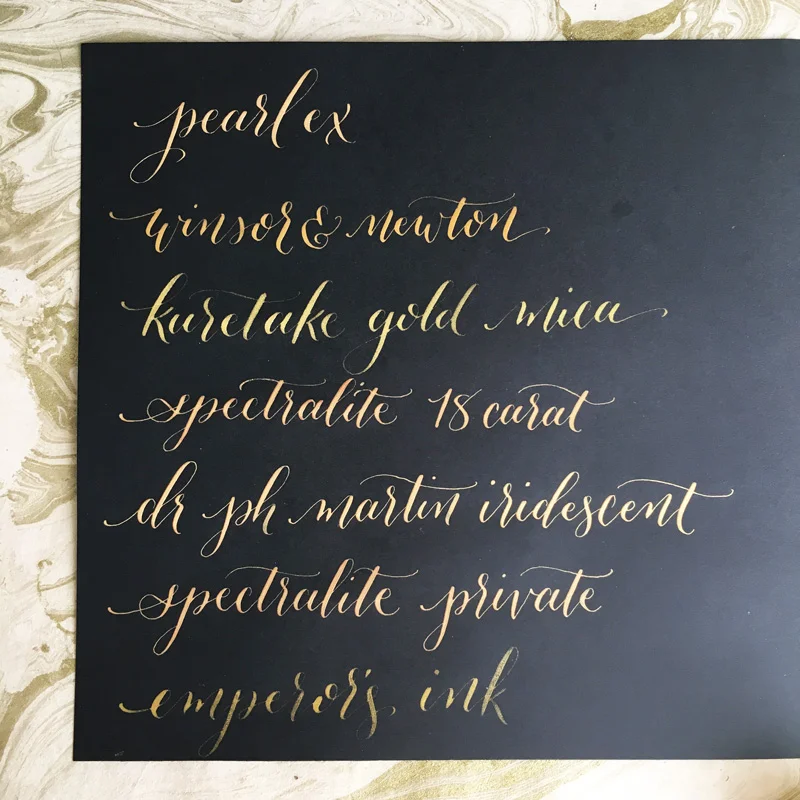 pearl ex
winsor & newton
kuretake gold mica
spectralite 18 carat
dr ph martin iridescent
spectralite private
emperor's ink